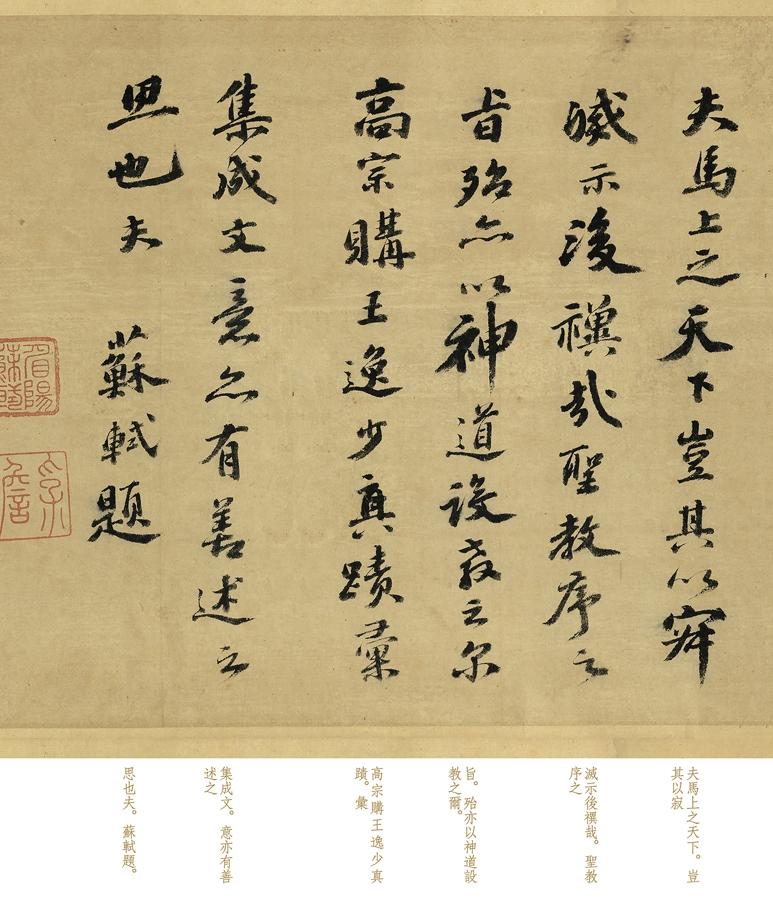 夫馬上之天下豈其以寂
滅示後禩哉聖教序之
旨殆亦以神道設教之尔
高宗購王逸少真蹟彙
集成文意亦有善述之
思也夫 蘇軾題
眉陽蘇軾
夫馬上之天下。豈
其以寂
滅示後禩哉。聖教
序之
旨。殆亦以神道設
教之爾。
高宗購王逸少真
蹟。彙
集成文。意亦有善
述之
思也夫。蘇軾題。